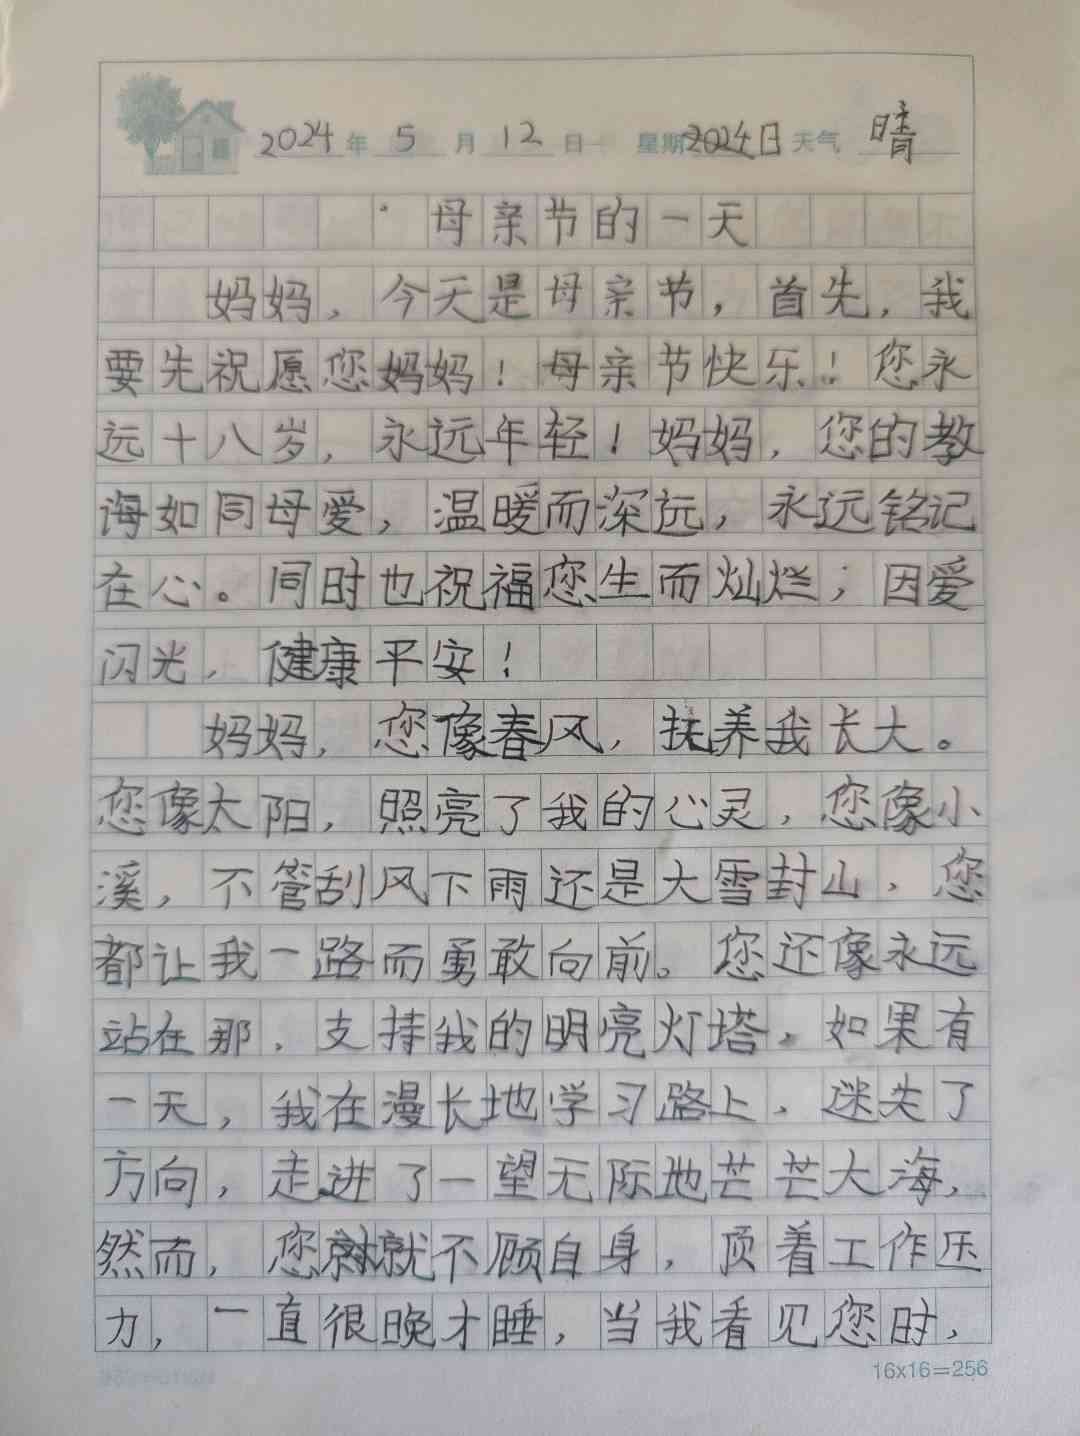 2024年5月12日 星期2024日天气 晴
母亲节的一天
妈妈，今天是母亲节，首先，我
要先祝愿您妈妈！母亲节快乐！您永
远十八岁，永远年轻！妈妈，您的教
诲如同母爱，温暖而深远，永远铭记
在心。同时也祝福您生而灿烂；因爱
闪光，健康平安！
妈妈，您像春风，抚养我长大。
您像太阳，照亮了我的心灵，您像小
溪，不管刮风下雨还是大雪封山，您
都让我一路而勇敢向前。您还像永远
站在那，支持我的明亮灯塔。如果有
一天，我在漫长地学习路上，迷失了
方向，走进了一望无际地芒芒大海，
然而，您就不顾自身，顶着工作压
力，一直很晚才睡，当我看见您时，
16x16=256